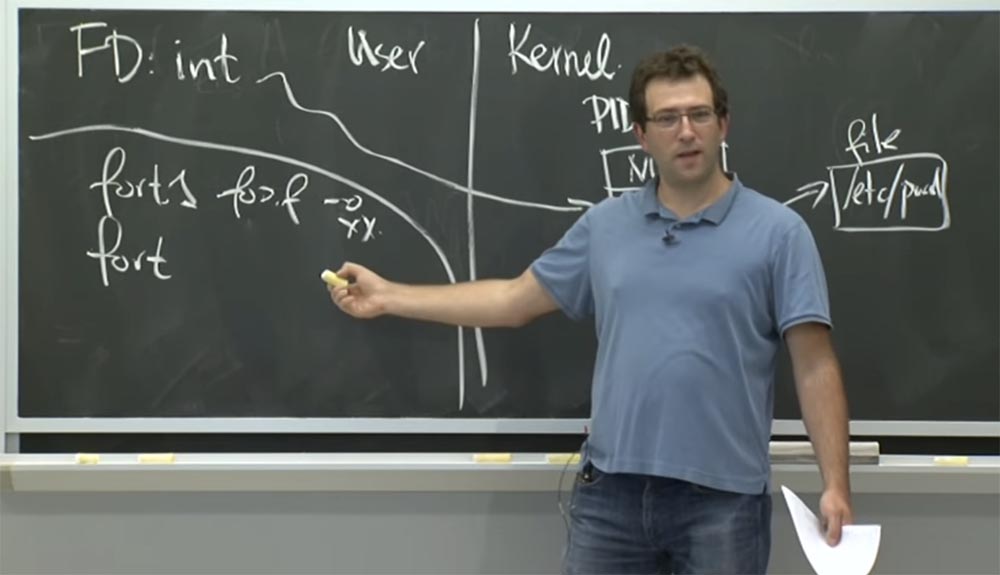 FD: int
User
Kernel.
PID
file
/etc/pwd
fort1 foo.f -o
xx.
fort